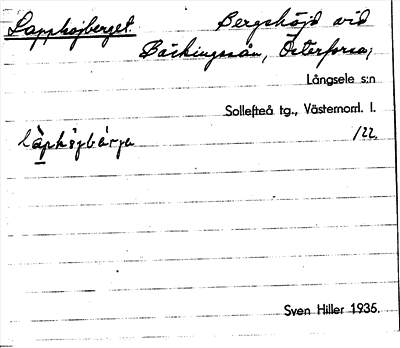 Lapphöjberget. Bergshöjd vid
Bäckingsån, Österforsa;
Långsele s:n
Sollefteå tg., Västernorrl. l.
làphö̀jbärja 122.
Sven Hiller 1935.